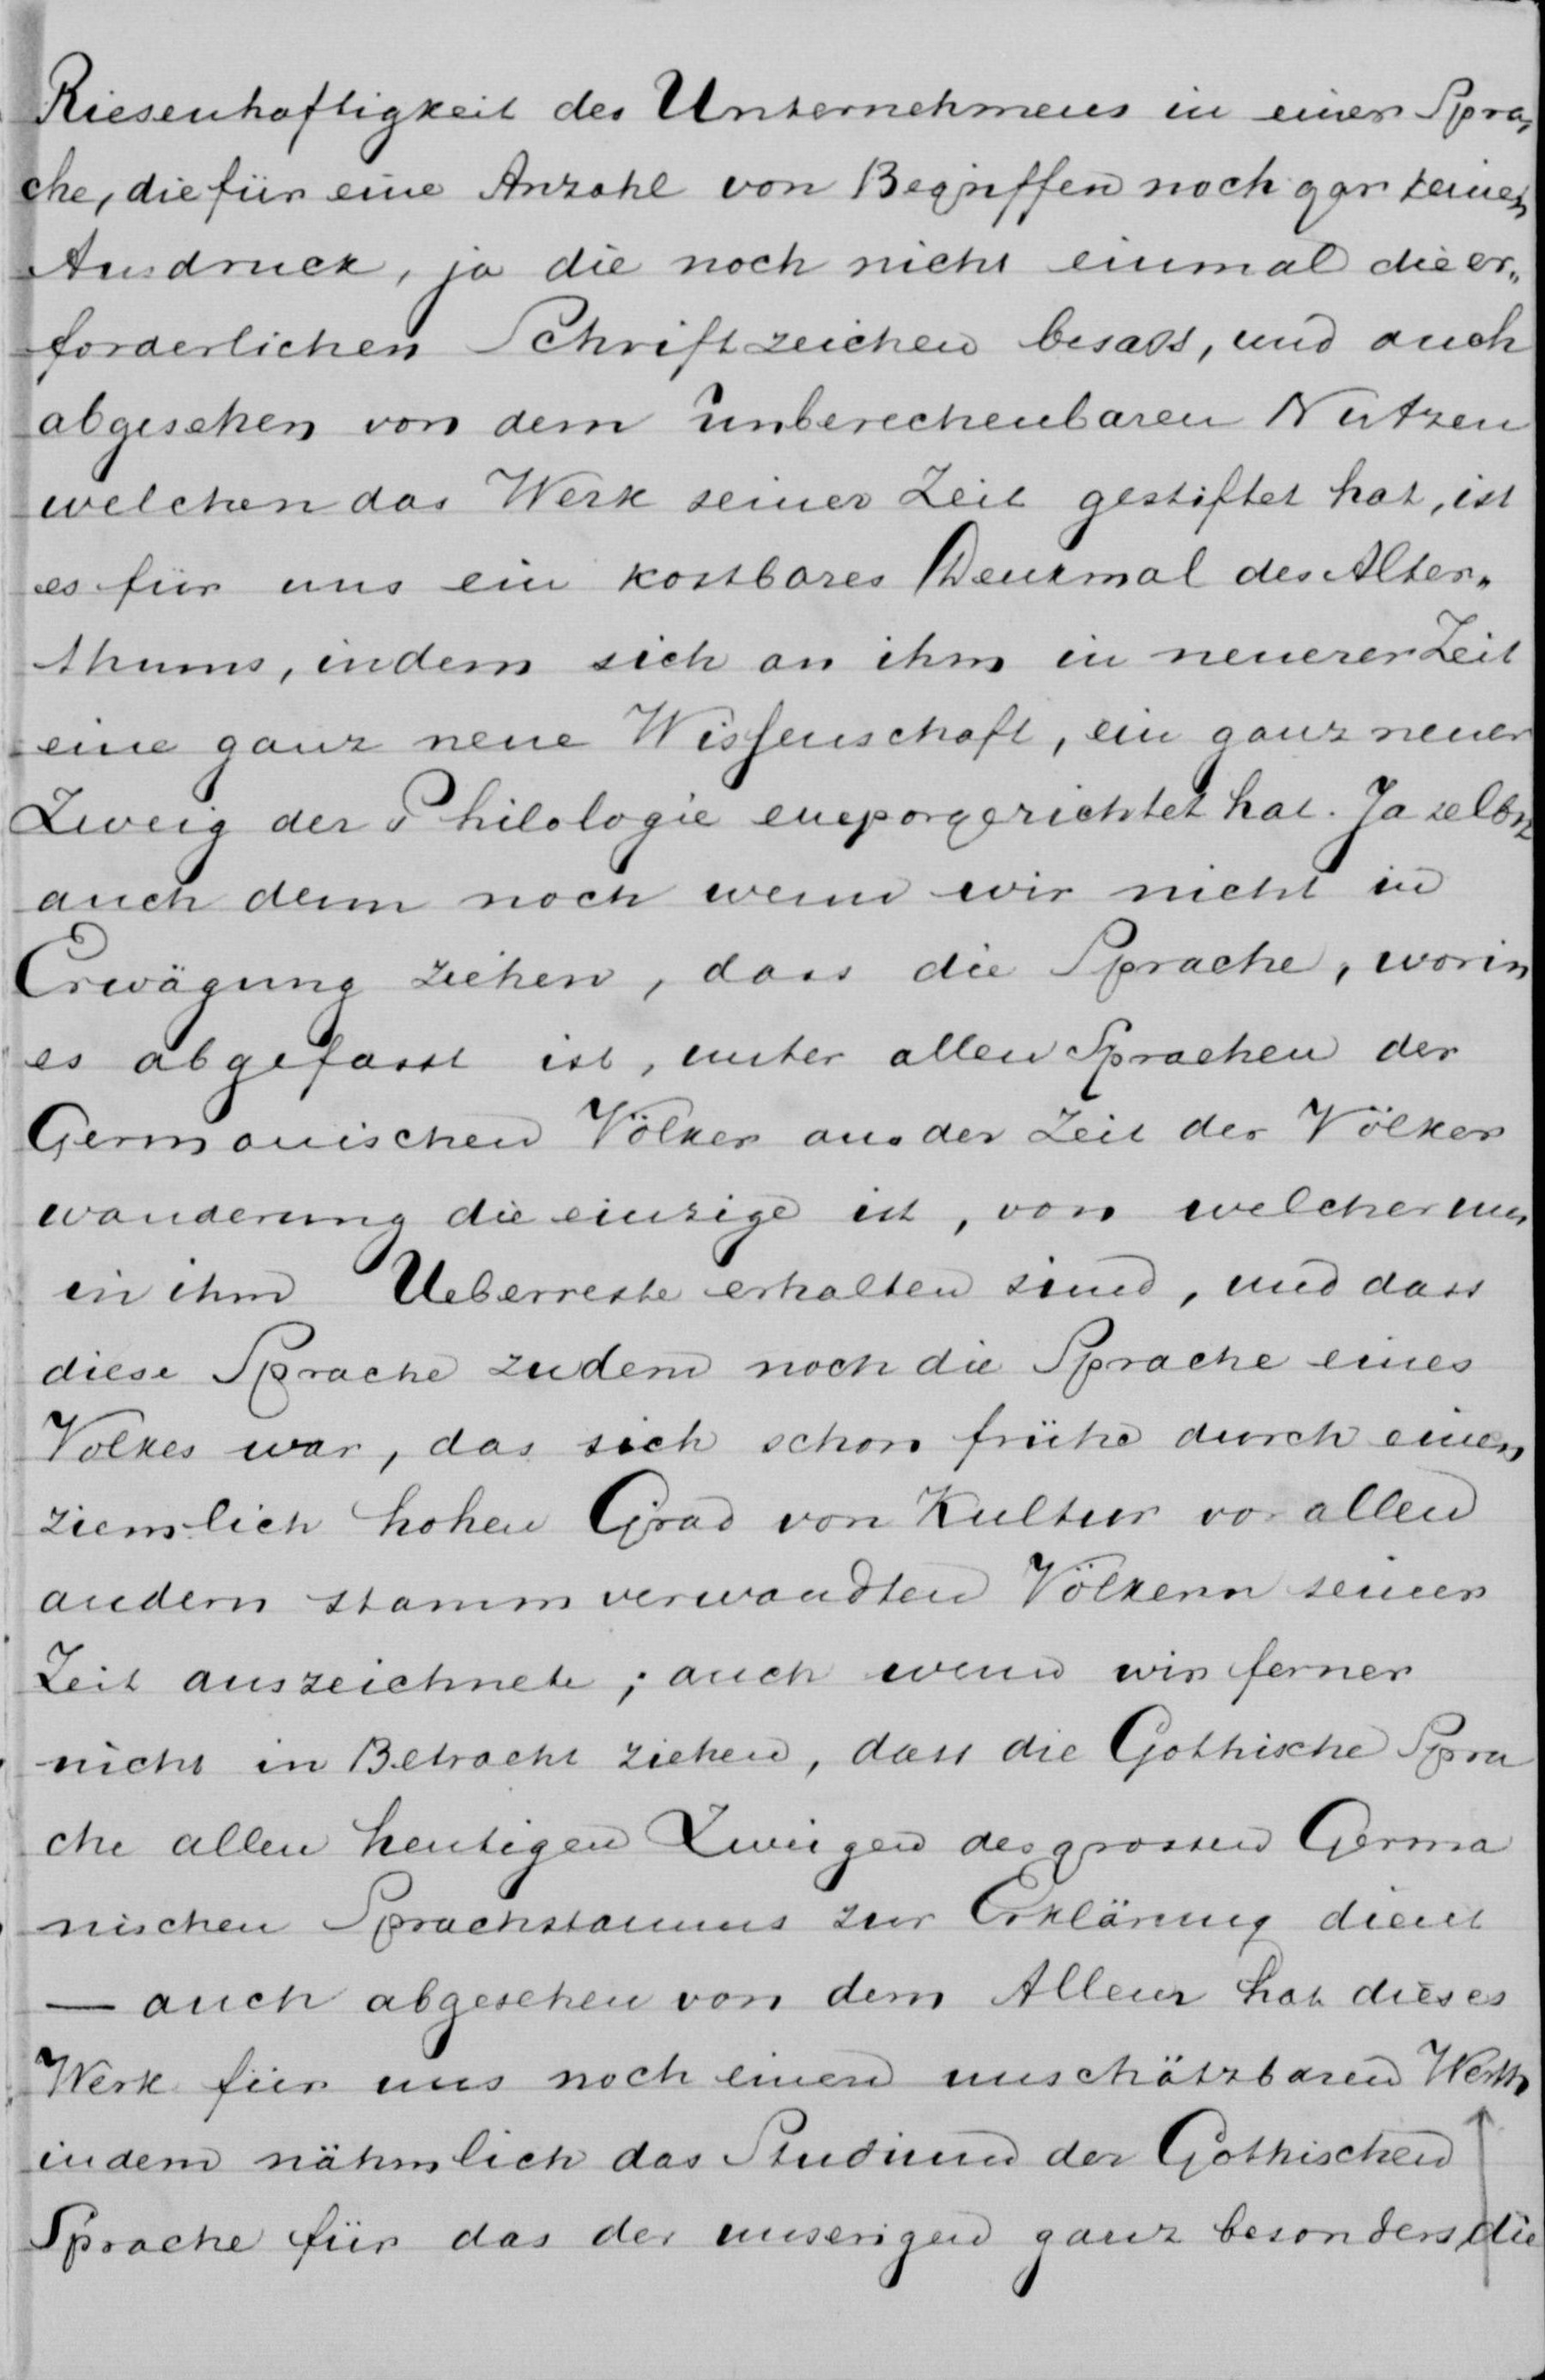 Riesenhaftigkeit des Unternehmens in einer Spra„
che, die für eine Anzahl von Begriffen noch gar keinen
Ausdruck, ja die noch nicht einmal die er„
forderlichen Schriftzeichen besass, und auch
abgesehen von dem unberechenbaren Nutzen
welchen das Werk seiner Zeit gestiftet hat, ist
es für uns ein kostbares Denkmal des Alter„
thums, indem sich an ihm in neuerer Zeit
eine ganz neue Wissenschaft, ein ganz neuer
Zweig der Philologie emporgerichtet hat. Ja selbst
auch denn noch wenn wir nicht in
Erwägung ziehen, dass die Sprache, worin
es abgefasst ist, unter allen Sprachen der
Germanischen Völker aus der Zeit der Völker
wanderung die einzige ist, von welcher uns
in ihm Ueberreste erhalten sind, und dass
diese Sprache zudem noch die Sprache eines
Volkes war, das sich schon frühe durch einen
ziemlich hohen Grad von Kultur vor allen
andern stammverwandten Völkern seiner
Zeit auszeichnete; auch wenn wir ferner
nicht in Betracht ziehen, dass die Gothische Spra
che allen heutigen Zweigen des grossen Germa
nischen Sprachstamms zur Erklärung dient
— auch abgesehen von dem Allem hat dieses
Werk für uns noch einen unschätzbaren Werth
indem nähmlich das Studium der Gothischen
Sprache für das der unserigen ganz besonders die